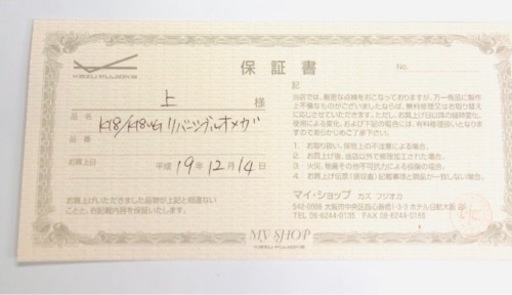 KAZU FUJIOKA
保証書
No.
上 様
品名 K18/K18WG リバーシブルオメガ
品番
お買上日 平成 19年 12月 14日
お買上げいただきました品物が上記と相違ない
ことと、右記載内容を保証いたします。
記
当店では、厳密な点検をおこなっておりますが、万一商品に製作
上不備なものがございましたならば、無料修理又はお取り替え
に応じさせていただきます。ただしお買上げ日以降の経時変化、
使用による変化、および下記の場合には、有料修理といたしま
すのであらかじめご了承下さい。
1. お取り扱い、保管上の不注意による場合。
2. お買上げ後、当店以外で修理加工された場合。
3. 火災、地震その他不可抗力による損傷の場合。
4. お買上げ伝票（領収書）記載事項と商品が一致しない場合。
マイ・ショップ カズ フジオカ
542-0086 大阪市中央区西心斎橋1-3-3 ホテル日航大阪
TEL 06-6244-0135 FAX 06-6244-0165
MY SHOP
KAZU FUJIOKA